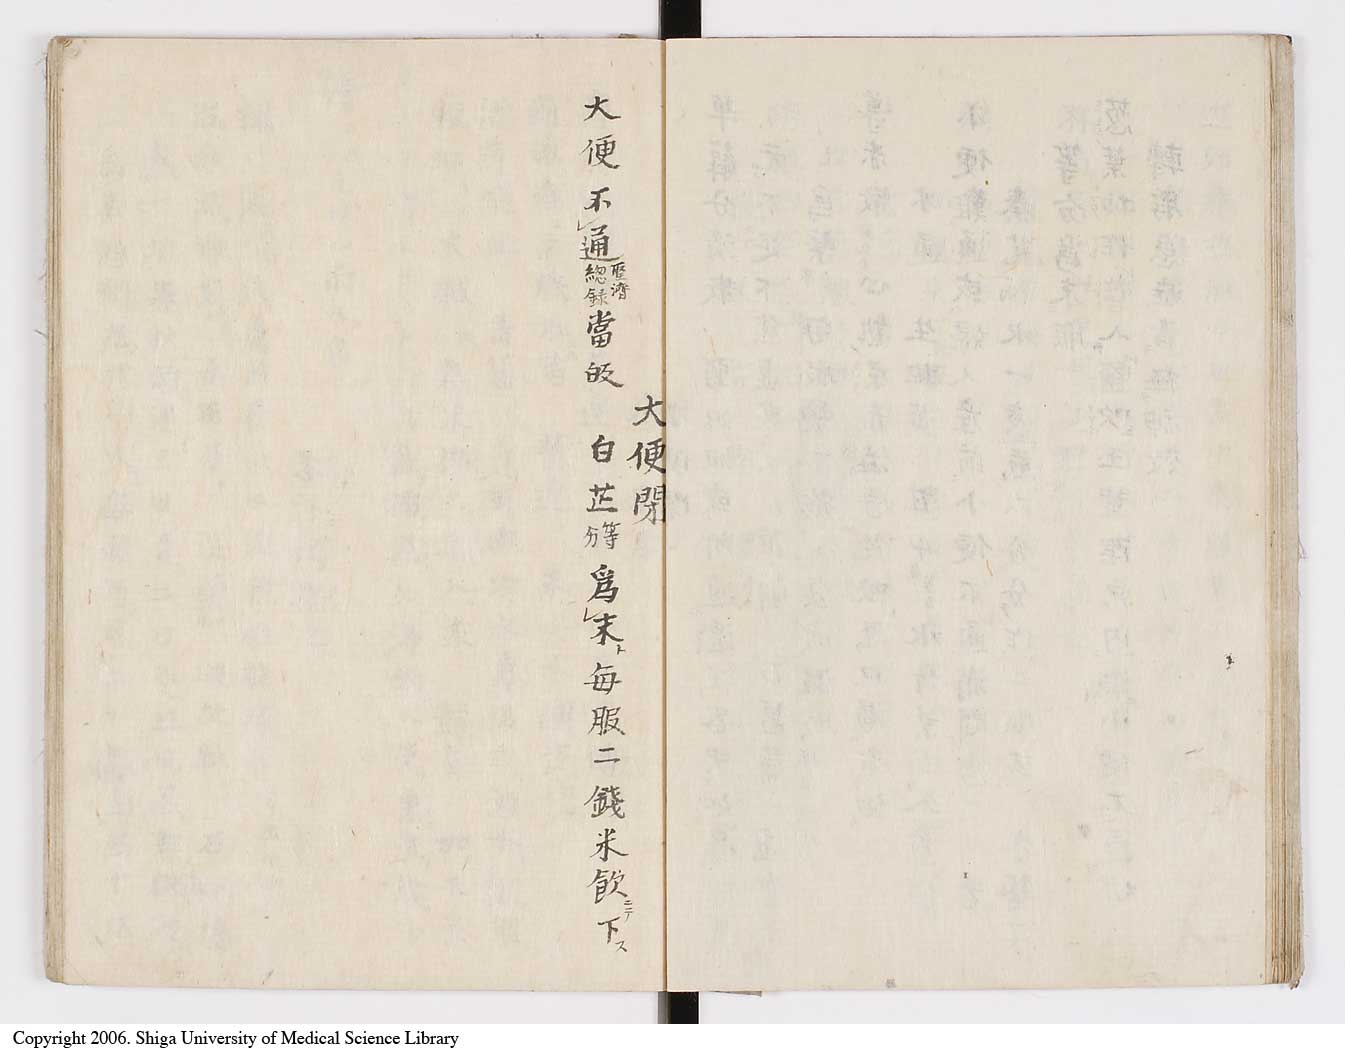 大便閉
大便不通聖濟總錄當皈白芷等分爲末ト每服二錢米飮ニテ下ス
Copyright 2006. Shiga University of Medical Science Library